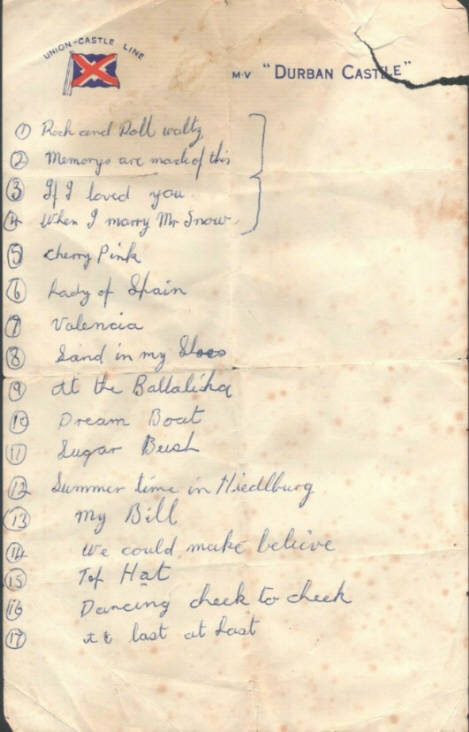 UNION-CASTLE LINE
M·V "DURBAN CASTLE"
① Rock and Roll waltz
② Memorys are made of this
③ If I loved you
④ When I marry Mr Snow
⑤ Cherry Pink
⑥ Lady of Spain
⑦ Valencia
⑧ Sand in my Shoes
⑨ At the Ballalika
⑩ Dream Boat
⑪ Sugar Bush
⑫ Summer time in Hiedlburg
⑬ My Bill
⑭ We could make believe
⑮ Top Hat
⑯ Dancing cheek to cheek
⑰ At last at last